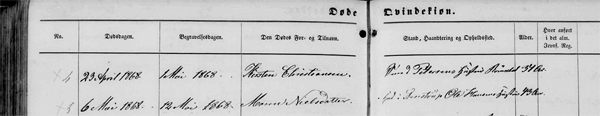 Døde Qvindekiøn.
No. Dødsdagen. Begravelsesdagen. Den Dødes For- og Tilnavn. Stand, Haandtering og Opholdssted. Alder. Hvor anført i det alm. Jevnf. Reg.
4 23 April 1868. 1 Mai 1868. Kirsten Christiansen. Hustru 31 Aar.
5 6 Mai 1868. 12 Mai 1868. Maren Nielsdatter. Ole Hansens Hustru 43 Aar.